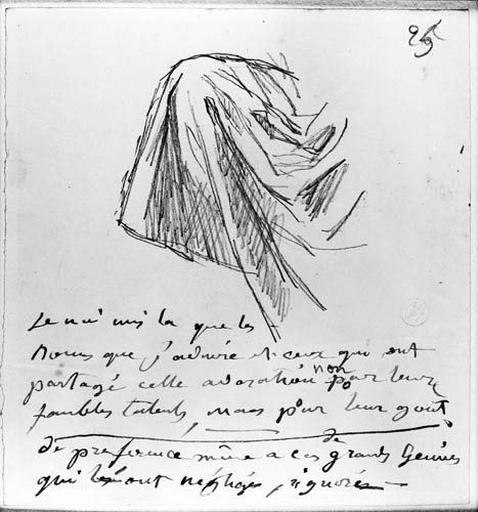 Je n'ai mis la que les
noms que j'admire et ceux qui ont
partagé cette adoration non par leurs
faibles talents, mais pour leur gout,
de preference même a ces grands Genies
qui les ont négligés, ignorés —